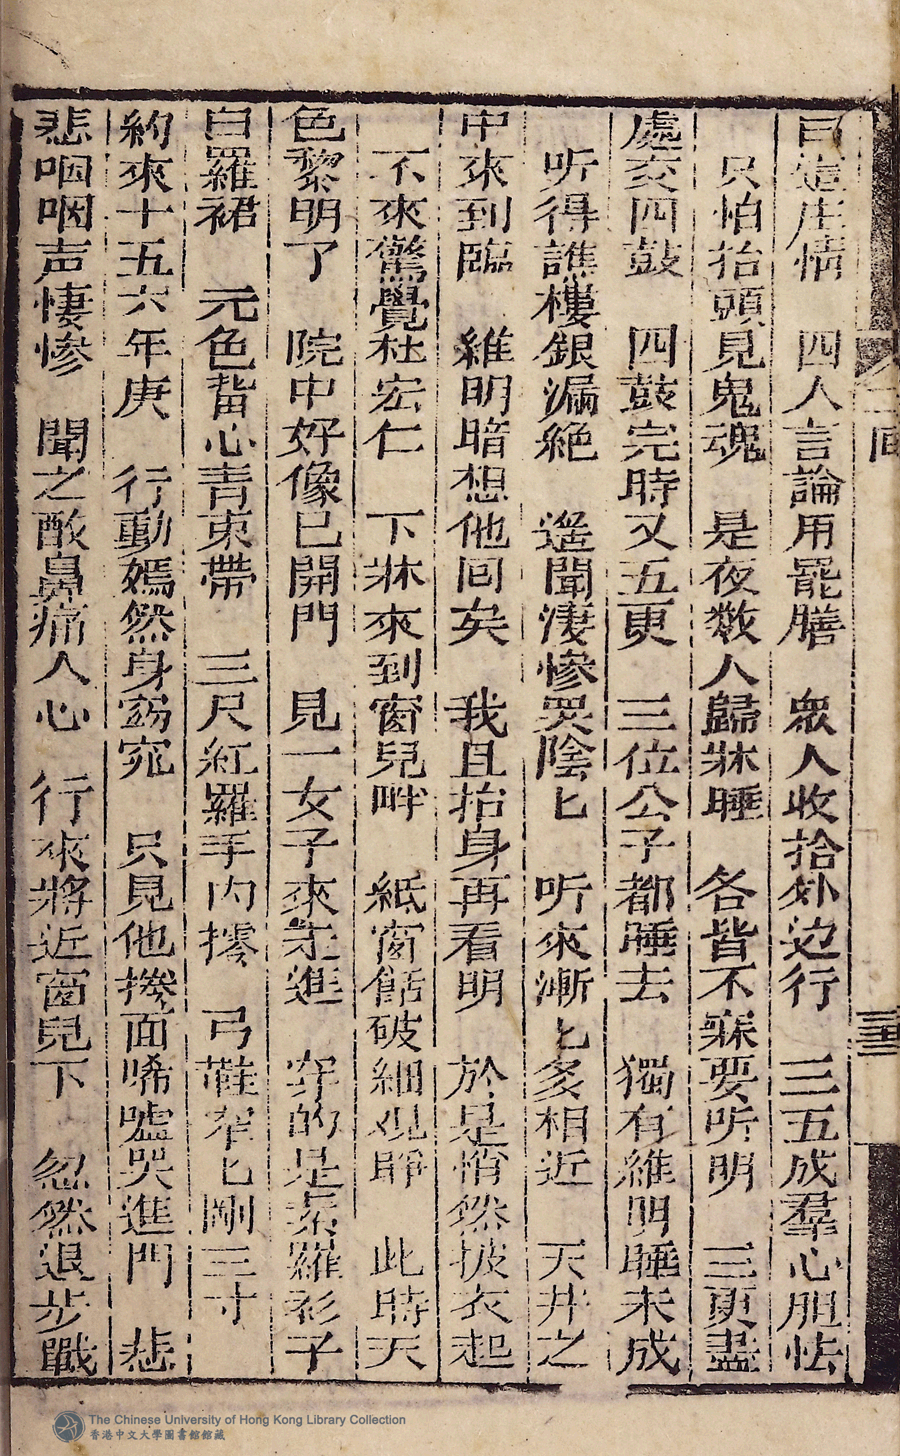 曰這庄情　四人言論用罷膳　眾人收拾外边行　三五成羣心胆怯
只怕抬頭見鬼魂　是夜数人歸牀睡　各皆不寐要听明　三更盡
處交四鼓　四鼓完時又五更　三位公子都睡去　獨有維明睡未成
听得譙樓銀漏絶　遥聞淒慘哭陰匕　听來漸匕多相近　天井之
中來到臨　維明暗想他回矣　我且抬身再看明　於是悄然披衣起
不來驚覺杜宏仁　下牀來到窗兒畔　紙窗餂破細观睜　此時天
色黎明了　院中好像已開門　見一女子來走進　穿的是素羅衫子
白羅裙　元色背心青束帶　三尺紅羅手內擰　弓鞋窄匕剛三寸
約來十五六年庚　行動嫣然身窈窕　只見他掩面唏噓哭進門　悲
悲咽咽声悽慘　聞之酸鼻痛人心　行來將近窗兒下　忽然退步戰
二回
三
The Chinese University of Hong Kong Library Collection
香港中文大學圖書館館藏